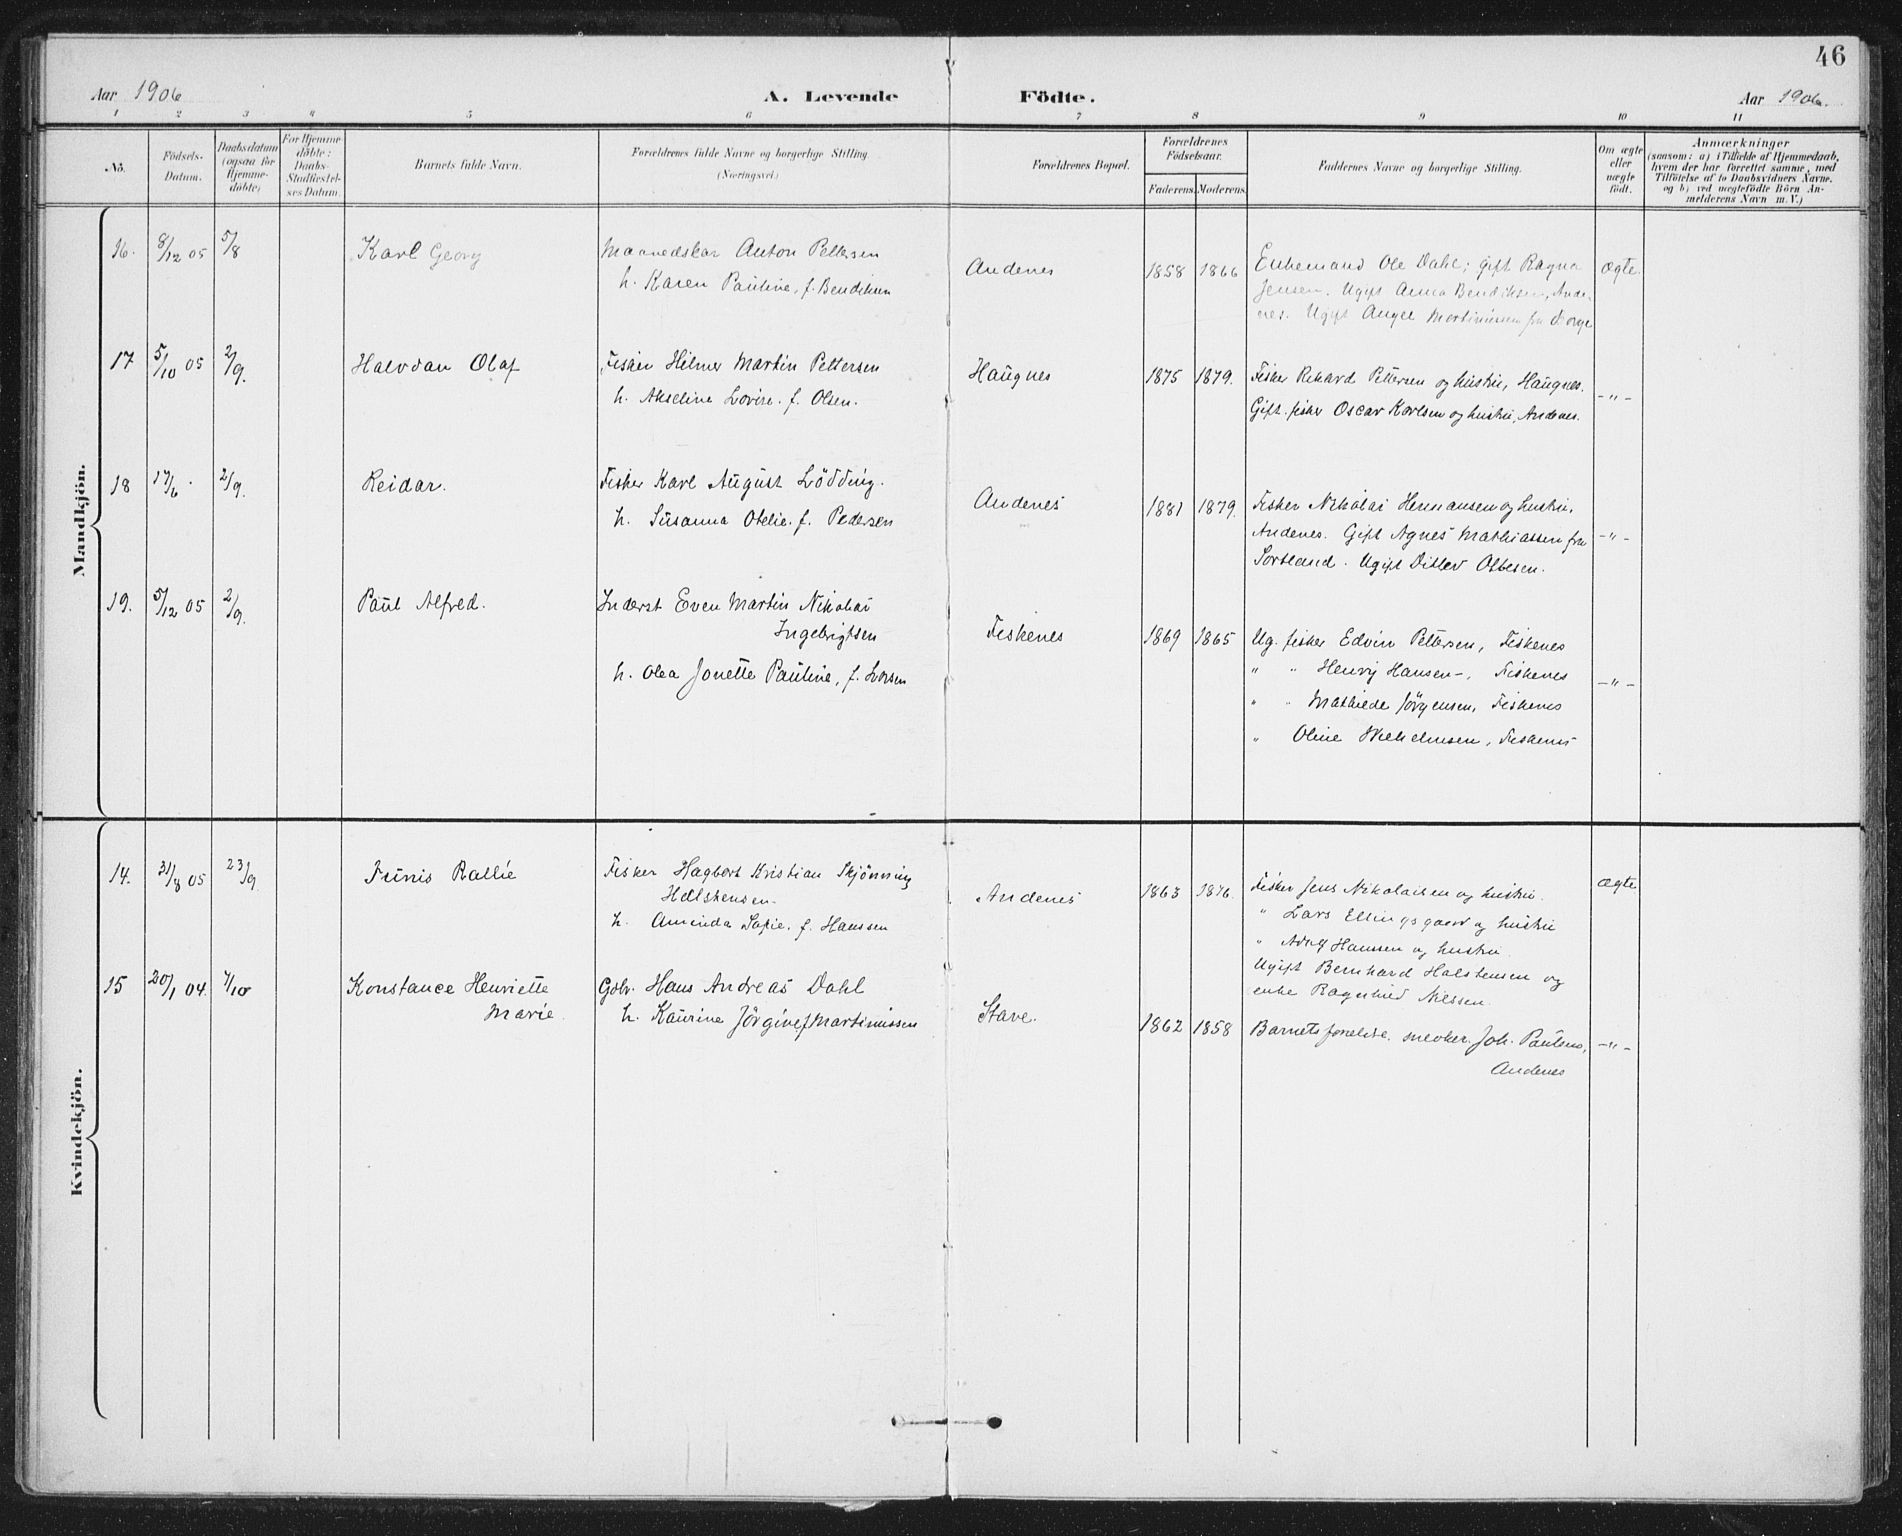 46
Aar 1906
A. Levende Födte.
Aar 1906.
1 2 3 4 5 6 7 8 9 10 11
No.
Födsels-Datum.
Daabsdatum (ogsaa for Hjemmedöbte)
For Hjemmedöbte: Daabs-Stadfæstelses Datum.
Barnets fulde Navn.
Forældrenes fulde Navne og borgerlige Stilling
(Næringsvei)
Forældrenes Bopæl.
Forældrenes Födselsaar.
Faderens. Moderens.
Faddernes Navne og borgerlige Stilling.
Om ægte eller uægte födt.
Anmærkninger
(saasom: a) i Tilfælde af Hjemmedaab,
hvem der har forrettet samme, med
Tilföielse af to Daabsvidners Navne.
og b) ved uægtefödte Börn An-
melderens Navn m. V.)
Mandkjön.
16. 8/12 05 5/8 Karl Georg
Maanedskar Anton Pettersen
h. Karen Pauline, f. Bendiksen
Andenes 1858 1866
Enkemand Ole Dahl; gift Ragna
Jensen. Ugift Anna Bendiksen, Ande-
nes. Ugift Angel Martinussen fra
ægte.
17 5/10 05 2/9. Halvdan Olaf
Fisker Hilmer Martin Pettersen
h. Akseline Lovise. f. Olsen.
Haugnes 1875 1879.
Fisker Rikard Pettersen og hustru, Haugnes.
Gift fisker Oscar Karlsen og hustru, Andenes.
-"-
18 17/6 . 2/9. Reidar.
Fisker Karl August Lödding.
h. Susanna Otelie. f. Pedersen
Andenes 1881 1879.
Fisker Nikolai Hermansen og hustru,
Andenes. Gift Agnes Mathiassen fra
Sortland. Ugift Ditlev Ottesen.
-"-
19. 5/12 05 2/9. Paul Alfred.
Inderst Even Martin Nikolai
Ingebrigtsen
h. Olea Jonette Pauline, f. Larsen
Fiskenes 1869 1865
Ug. fisker Edvin Pettersen, Fiskenes
" " Henrij Hansen -, Fiskenes
" " Mathilde Jörgensen, Fiskenes
" Oline Wilhelmsen, Fiskenes
-"-
Kvindekjön.
14. 31/8 05 23/9. Funis Rallie
Fisker Hagbart Kristian Skjönning
Halstensen.
h. Aminda Sofie. f. Hanssen
Andenes 1863 1876.
Fisker Jens Nikolaisen og hustru.
" Lars Ellingsgaard og hustru
" Adolf Hanssen og hustru.
Ugift Bernhard Halstensen og
enke Ragnhild Nilssen.
ægte
15 20/1 04. 7/10 Konstance Henriette
Marie.
Gbr. Hans Andreas Dahl
h. Kaurine Jörgine f Martinussen
Stave. 1862 1858
Barnets forældre. snedker. Joh. Paulens,
Andenes
-"-